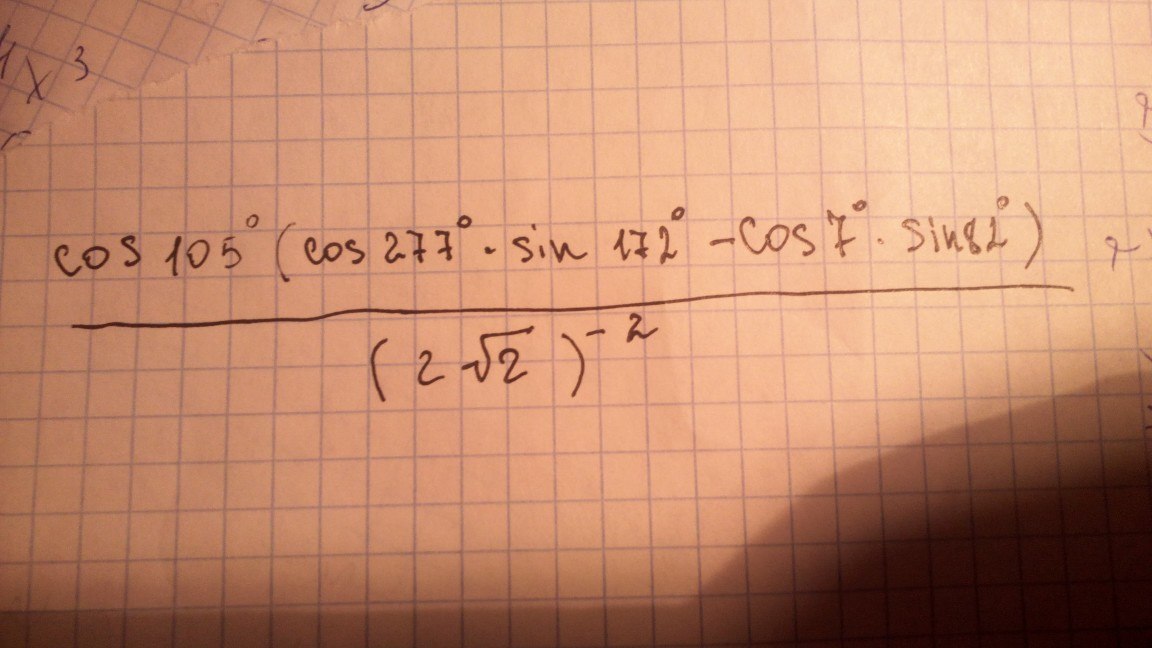 x³
cos 105° (cos 277° · sin 172° - cos 7° · sin 82°)
(2√2)⁻²